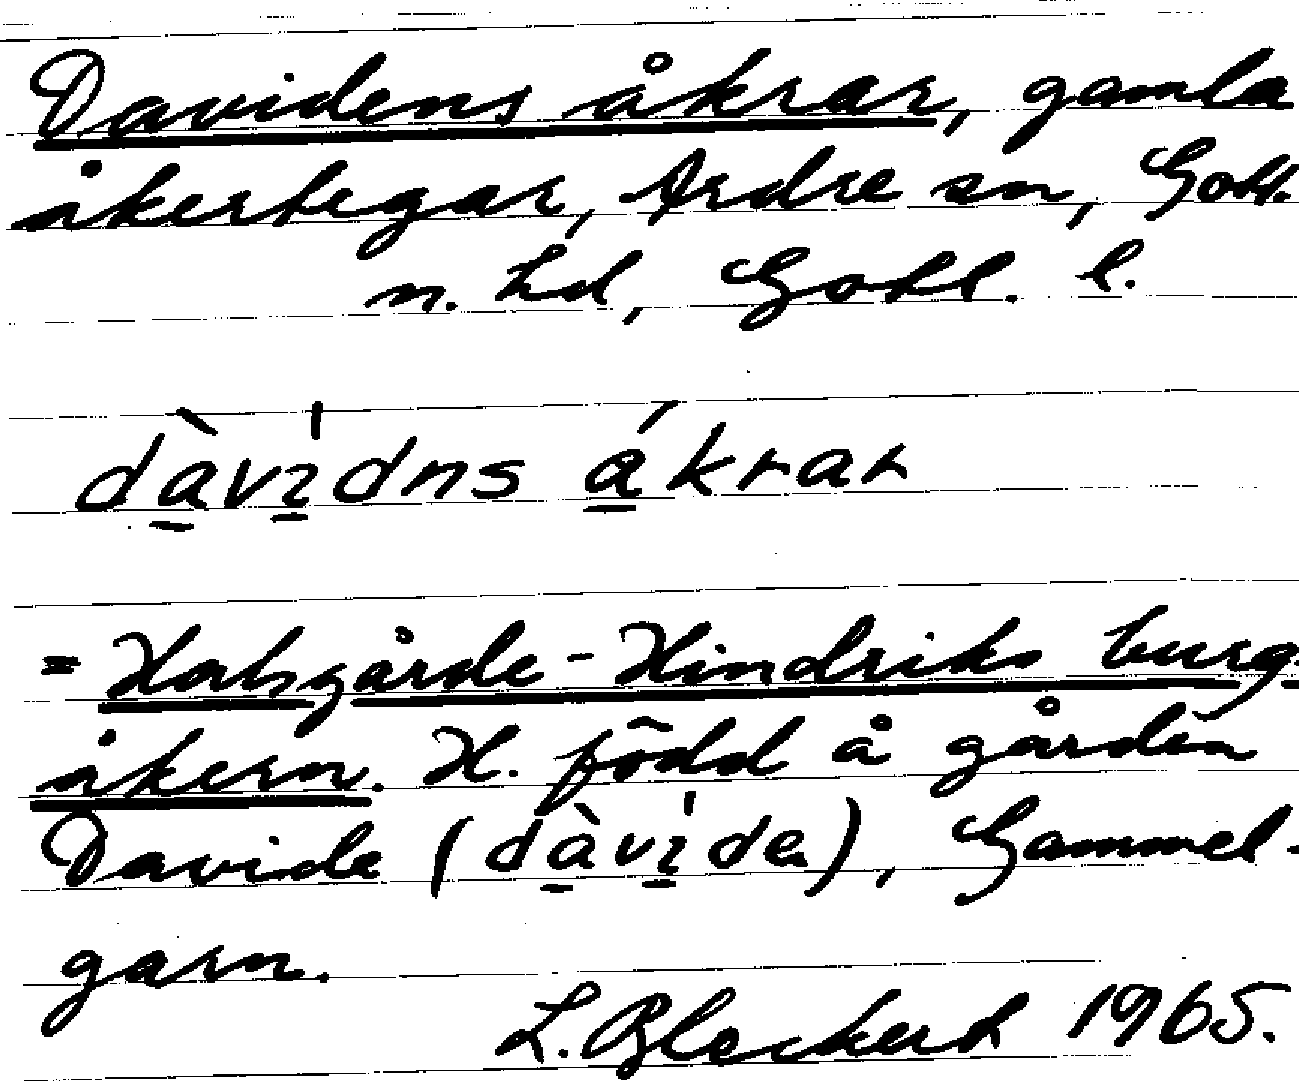 Davidens åkrar, gamla
åkertegar, Ardre sn, Gotl.
n. hd, Gotl. l.
dàvịdns ákrar
= Hallsgårde-Hindriks burg-
åkern. H. född å gården
Davide (dàvịde), Gammel-
garn.
L. Bleckert 1965.